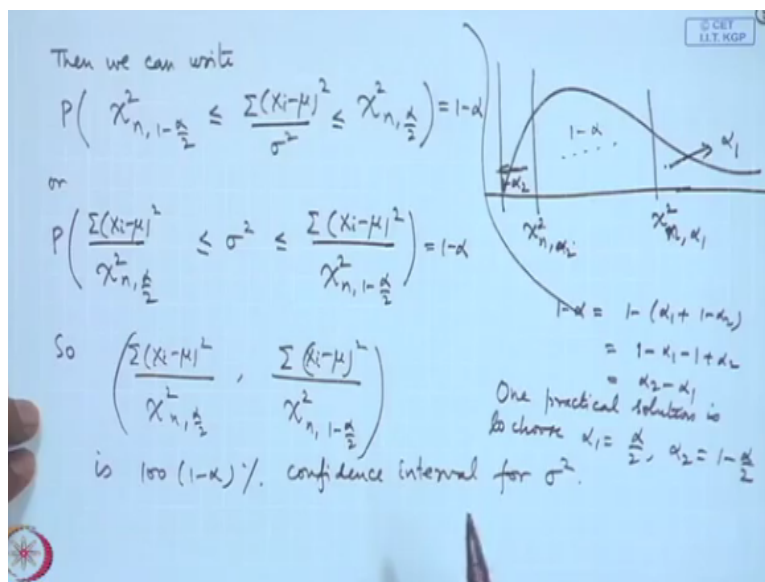 © CET
I.I.T. KGP
Then we can write
P( χ²_{n, 1-α/2} ≤ Σ(Xi-μ)²/σ² ≤ χ²_{n, α/2} ) = 1-α
or
P( Σ(Xi-μ)²/χ²_{n, α/2} ≤ σ² ≤ Σ(Xi-μ)²/χ²_{n, 1-α/2} ) = 1-α
So ( Σ(Xi-μ)²/χ²_{n, α/2} , Σ(Xi-μ)²/χ²_{n, 1-α/2} )
is 100(1-α)%. confidence interval for σ².
1-α
α₁
1-α₂
χ²_{n, α₂}
χ²_{n, α₁}
1-α = 1-(α₁ + 1-α₂)
= 1-α₁-1+α₂
= α₂-α₁
One practical solution is
to choose α₁ = α/2, α₂ = 1-α/2